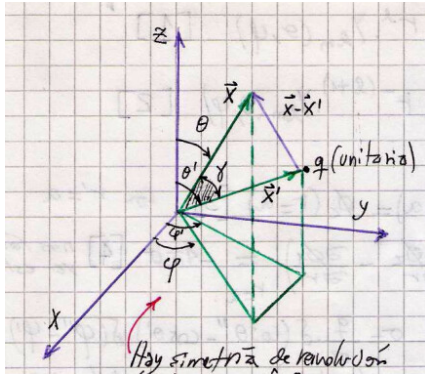 z
x⃗
x⃗-x⃗'
θ
q (unitaria)
θ'
γ
x⃗'
y
φ'
φ
x
Hay simetría de revolución